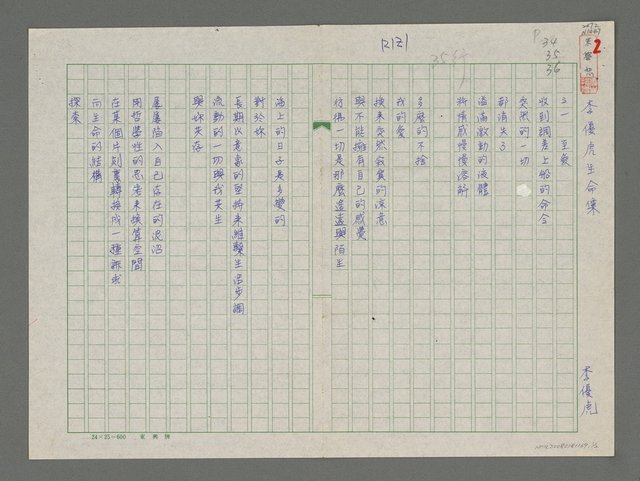 李優虎生命集
李優虎
三一 至愛
收到調差上船的命令
突然的一切
都消失了
溢滿激動的液體
將情感慢慢溶解
多麼的不捨
我的愛
換來突然寂寞的涼意
與不能擁有自己的感覺
彷彿一切是那麼遙遠與陌生
海上的日子是多變的
對於妳
長期以意象的堅持來維繫生活步調
流動的一切與我共生
與妳共存
屢屢陷入自己存在的泥沼
用哲學性的思考來換算空間
在某個片刻裏轉換成一種訴求
向生命的結構
探索
R121
P34
35
36
2
24×25=600